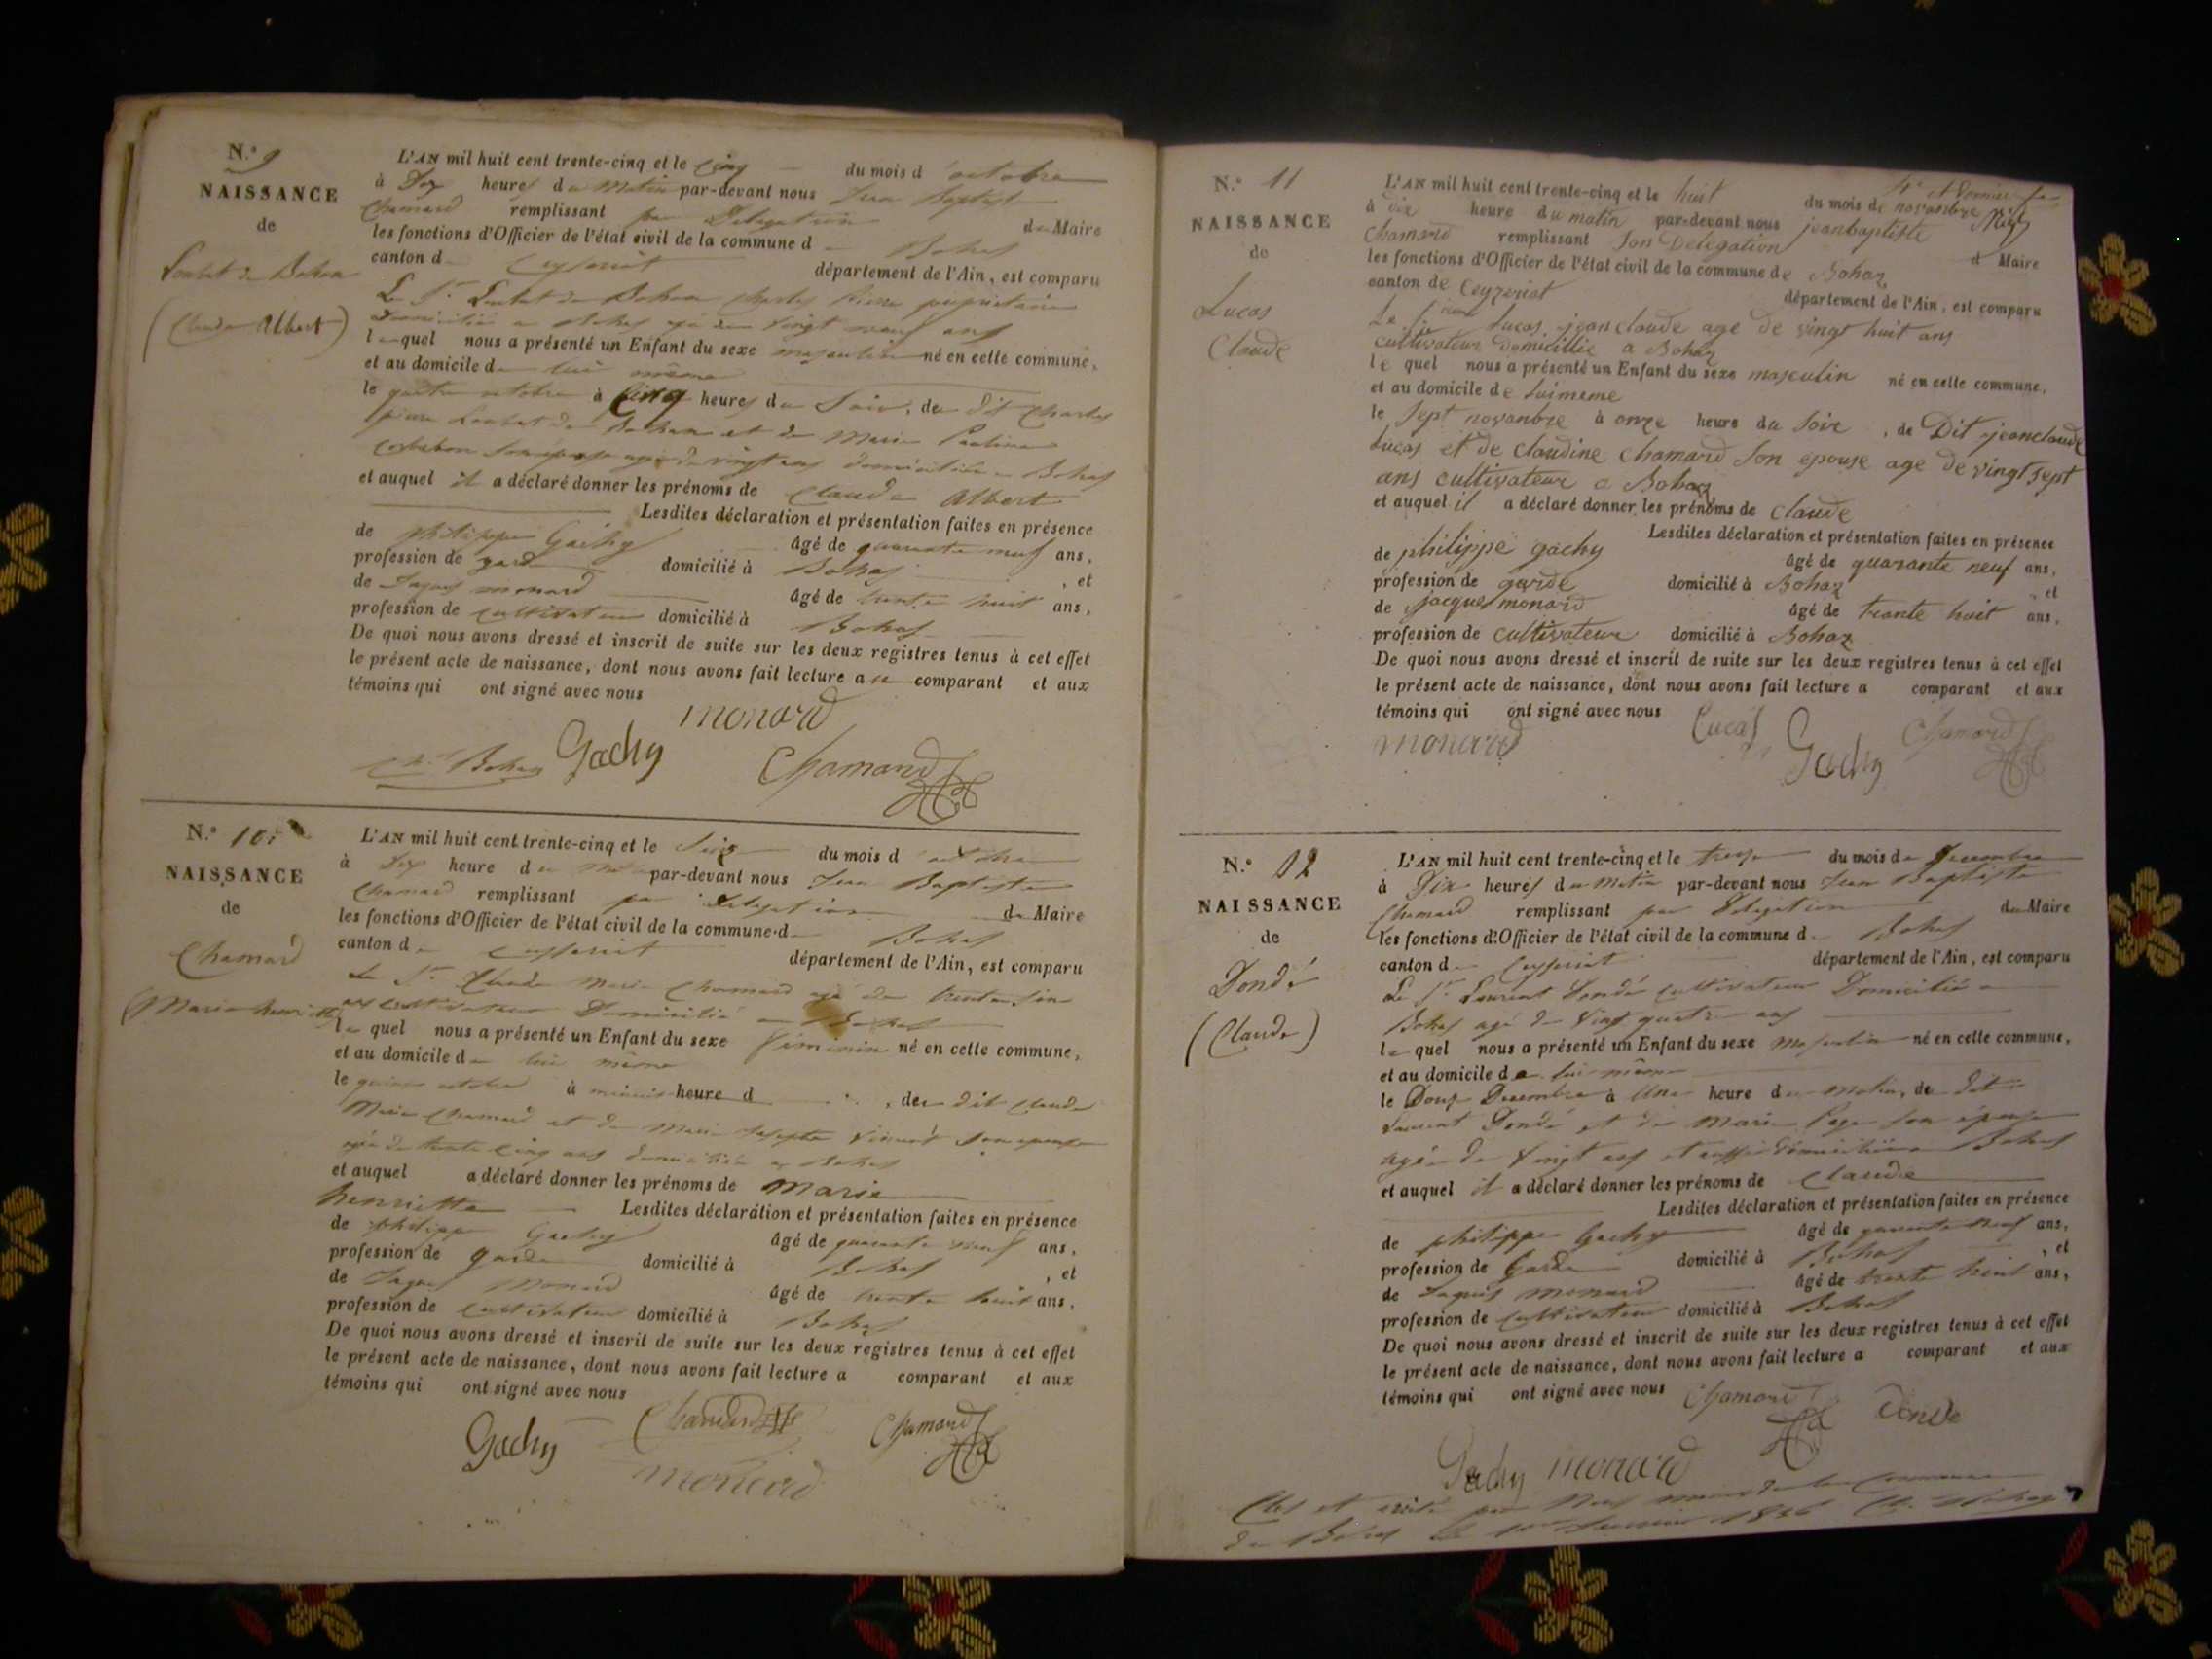 N.° 9
NAISSANCE
de
Loubat de Bohan
(Claude Albert)
L'AN mil huit cent trente-cinq et le cinq du mois d'octobre
à Dix heures du Matin par-devant nous Jean Baptiste
Chamard remplissant par Délégation du Maire
les fonctions d'Officier de l'état civil de la commune d Bohas
canton de Ceyseriat département de l'Ain, est comparu
Le Sr. Loubat de Bohan Charles Pierre propriétaire
domicilié a Bohas agé de vingt neuf ans
lequel nous a présenté un Enfant du sexe masculin né en cette commune,
et au domicile de lui même
le quatre octobre à Cinq heures du Soir, du dit Charles
pierre Loubat de Bohan et de Marie Pauline
son épouse agée de vingt ans domiciliée a Bohas
et auquel il a déclaré donner les prénoms de Claude Albert
Lesdites déclaration et présentation faites en présence
de philippe Gachy âgé de quarante neuf ans,
profession de garde domicilié à Bohas, et
de Jaques monard âgé de trente huit ans,
profession de cultivateur domicilié à Bohas
De quoi nous avons dressé et inscrit de suite sur les deux registres tenus à cet effet
le présent acte de naissance, dont nous avons fait lecture au comparant et aux
témoins qui ont signé avec nous
monard
Bohan Gachy Chamard
N.° 10
NAISSANCE
de
Chamard
(Marie henriette
L'AN mil huit cent trente-cinq et le Seize du mois d'octobre
à Dix heure du Matin par-devant nous Jean Baptiste
Chamard remplissant par Délégation du Maire
les fonctions d'Officier de l'état civil de la commune d Bohas
canton de Ceyseriat département de l'Ain, est comparu
Le Sr. Claude Marie Chamard agé de trente cinq
ans cultivateur Domicilié a Bohas
lequel nous a présenté un Enfant du sexe féminin né en cette commune,
et au domicile de lui même
le quinze octobre à minuit heure d, du dit Claude
Marie Chamard et de Marie Josephte son epouse
agée de trente cinq ans domiciliée a Bohas
et auquel a déclaré donner les prénoms de Marie
henriette Lesdites déclaration et présentation faites en présence
de philippe Gachy âgé de quarante neuf ans,
profession de garde domicilié à Bohas, et
de Jaques Monard âgé de trente huit ans,
profession de cultivateur domicilié à Bohas
De quoi nous avons dressé et inscrit de suite sur les deux registres tenus à cet effet
le présent acte de naissance, dont nous avons fait lecture a comparant et aux
témoins qui ont signé avec nous
Gachy Chamard Chamard
monard
N.° 11
NAISSANCE
de
Lucas
Claude
4e et dernier feuillet
L'AN mil huit cent trente-cinq et le huit du mois de novanbre
à dix heure du matin par-devant nous jeanbaptiste
Chamard remplissant Son Délégation d Maire
les fonctions d'Officier de l'état civil de la commune de Bohaz
canton de Ceyzeriat département de l'Ain, est comparu
Le sieur Lucas jeanclaude agé de vingt huit ans
cultivateur domicillié a Bohaz
le quel nous a présenté un Enfant du sexe masculin né en cette commune,
et au domicile de Luimeme
le Sept novanbre à onze heure du Soir, de Dit jeanclaude
Lucas et de claudine Chamard Son epouse age de vingt sept
ans cultivateur a Bohaz
et auquel il a déclaré donner les prénoms de Claude
Lesdites déclaration et présentation faites en présence
de philippe gachy âgé de quarante neuf ans,
profession de garde domicilié à Bohaz, et
de jacque monard âgé de trante huit ans,
profession de cultivateur domicilié à Bohaz
De quoi nous avons dressé et inscrit de suite sur les deux registres tenus à cet effet
le présent acte de naissance, dont nous avons fait lecture a comparant et aux
témoins qui ont signé avec nous Lucas Chamard
monard Gachy
N.° 12
NAISSANCE
de
Dondé
(Claude)
L'AN mil huit cent trente-cinq et le treize du mois de Decembre
à Dix heures du Matin par-devant nous Jean Baptiste
Chamard remplissant par Délégation du Maire
les fonctions d'Officier de l'état civil de la commune d Bohas
canton de Ceyseriat département de l'Ain, est comparu
Le Sr. Laurent Dondé cultivateur Domicilié a
Bohas agé de vingt quatre ans
lequel nous a présenté un Enfant du sexe masculin né en cette commune,
et au domicile de lui-même
le Douze Decembre à Une heure du matin, du dit
Laurent Dondé et de Marie Page son épouse
agée de vingt ans et aussi domiciliée a Bohas
et auquel il a déclaré donner les prénoms de Claude
Lesdites déclaration et présentation faites en présence
de philippe Gachy âgé de quarante neuf ans,
profession de Garde domicilié à Bohas, et
de Jaques monard âgé de trente huit ans,
profession de cultivateur domicilié à Bohas
De quoi nous avons dressé et inscrit de suite sur les deux registres tenus à cet effet
le présent acte de naissance, dont nous avons fait lecture a comparant et aux
témoins qui ont signé avec nous Chamard Dondé
Gachy monard
Clos et arrêté par Nous maire de la Commune
de Bohas le 1er Janvier 1836